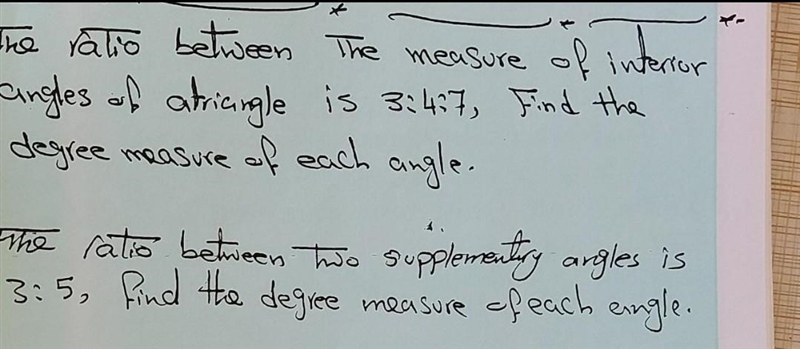 The ratio between The measure of interior
angles of atriangle is 3:4:7, Find the
degree measure of each angle.
The ratio between two supplementry angles is
3:5, find the degree measure of each angle.